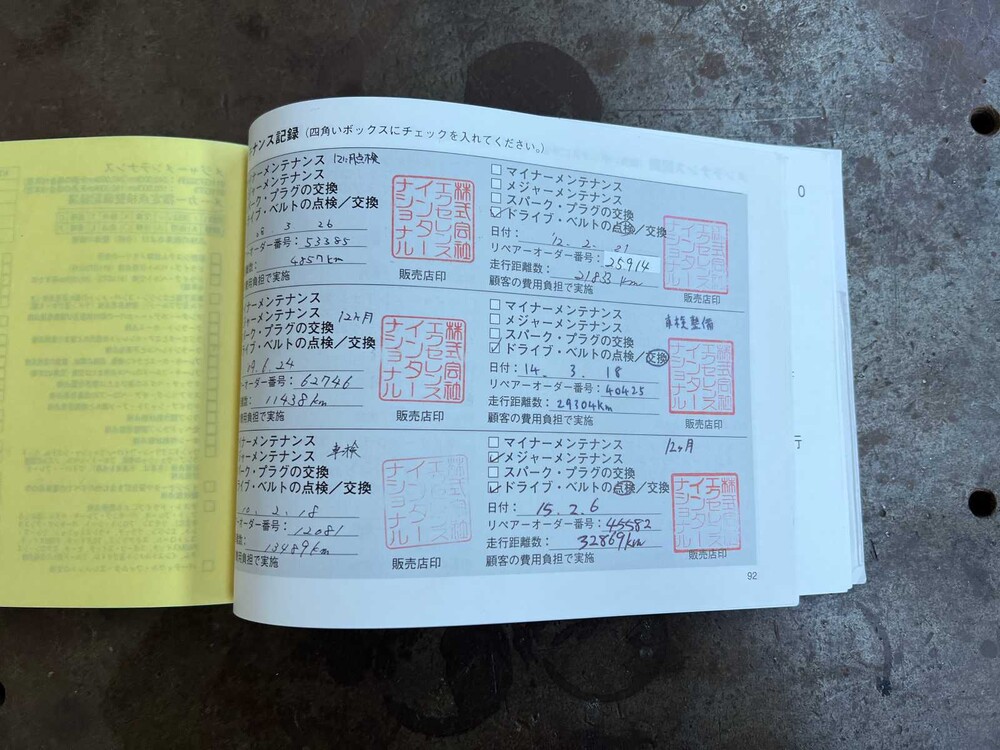 ナンス記録 (四角いボックスにチェックを入れてください。)
ーメンテナンス 12ヶ月点検
ャーメンテナンス
ーク・プラグの交換
イブ・ベルトの点検／交換
3 26
ーオーダー番号：53385
数： 4857km
用負担で実施
株式会社エクセレンスインターナショナル
販売店印
ナーメンテナンス
ャーメンテナンス 12ヶ月
ーク・プラグの交換
イブ・ベルトの点検／交換
19.6.24
ーオーダー番号：62746
数： 11438km
用負担で実施
株式会社エクセレンスインターナショナル
販売店印
ナーメンテナンス
ャーメンテナンス 車検
ーク・プラグの交換
イブ・ベルトの点検／交換
2.18
ーオーダー番号：12081
数： 13489km
用負担で実施
株式会社エクセレンスインターナショナル
販売店印
マイナーメンテナンス
メジャーメンテナンス
スパーク・プラグの交換
ドライブ・ベルトの点検／交換
日付： '12. 2. 21
リペアーオーダー番号：25914
走行距離数： 21833 km
顧客の費用負担で実施
株式会社エクセレンスインターナショナル
販売店印
マイナーメンテナンス
メジャーメンテナンス 車検整備
スパーク・プラグの交換
ドライブ・ベルトの点検／交換
日付：14. 3. 18
リペアーオーダー番号：40425
走行距離数： 29304km
顧客の費用負担で実施
株式会社エクセレンスインターナショナル
販売店印
マイナーメンテナンス 12ヶ月
メジャーメンテナンス
スパーク・プラグの交換
ドライブ・ベルトの点検／交換
日付： 15.2.6
リペアーオーダー番号：45582
走行距離数： 32869km
顧客の費用負担で実施
株式会社エクセレンスインターナショナル
販売店印
92
0
行